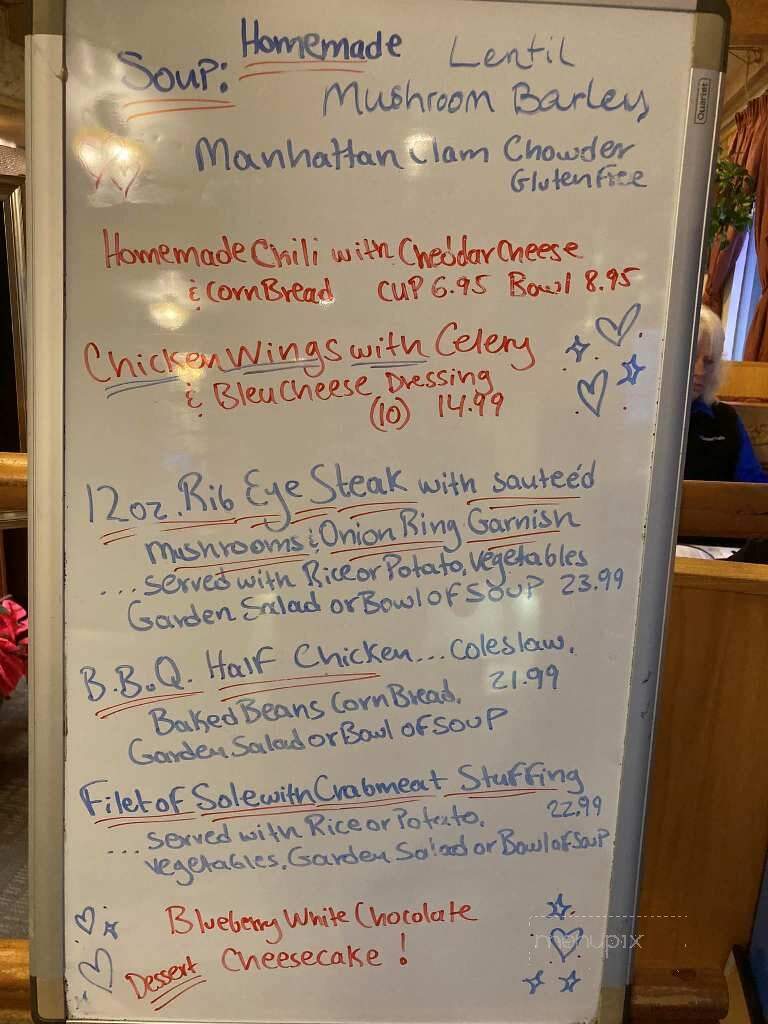 Soup: Homemade Lentil
Mushroom Barley
Manhattan Clam Chowder
Gluten Free
Homemade Chili with Cheddar Cheese
& Corn Bread CUP 6.95 Bowl 8.95
Chicken Wings with Celery
& Bleu Cheese Dressing
(10) 14.99
12oz. Rib Eye Steak with sauteéd
mushrooms & Onion Ring Garnish
...served with Rice or Potato, vegetables
Garden Salad or Bowl of Soup 23.99
B.B.Q. Half Chicken... coleslaw,
21.99
Baked Beans Corn Bread,
Garden Salad or Bowl of Soup
Filet of Sole with Crabmeat Stuffing
22.99
...served with Rice or Potato,
vegetables, Garden Salad or Bowl of Soup
Blueberry White Chocolate
Dessert Cheesecake!
Quartet
menupix